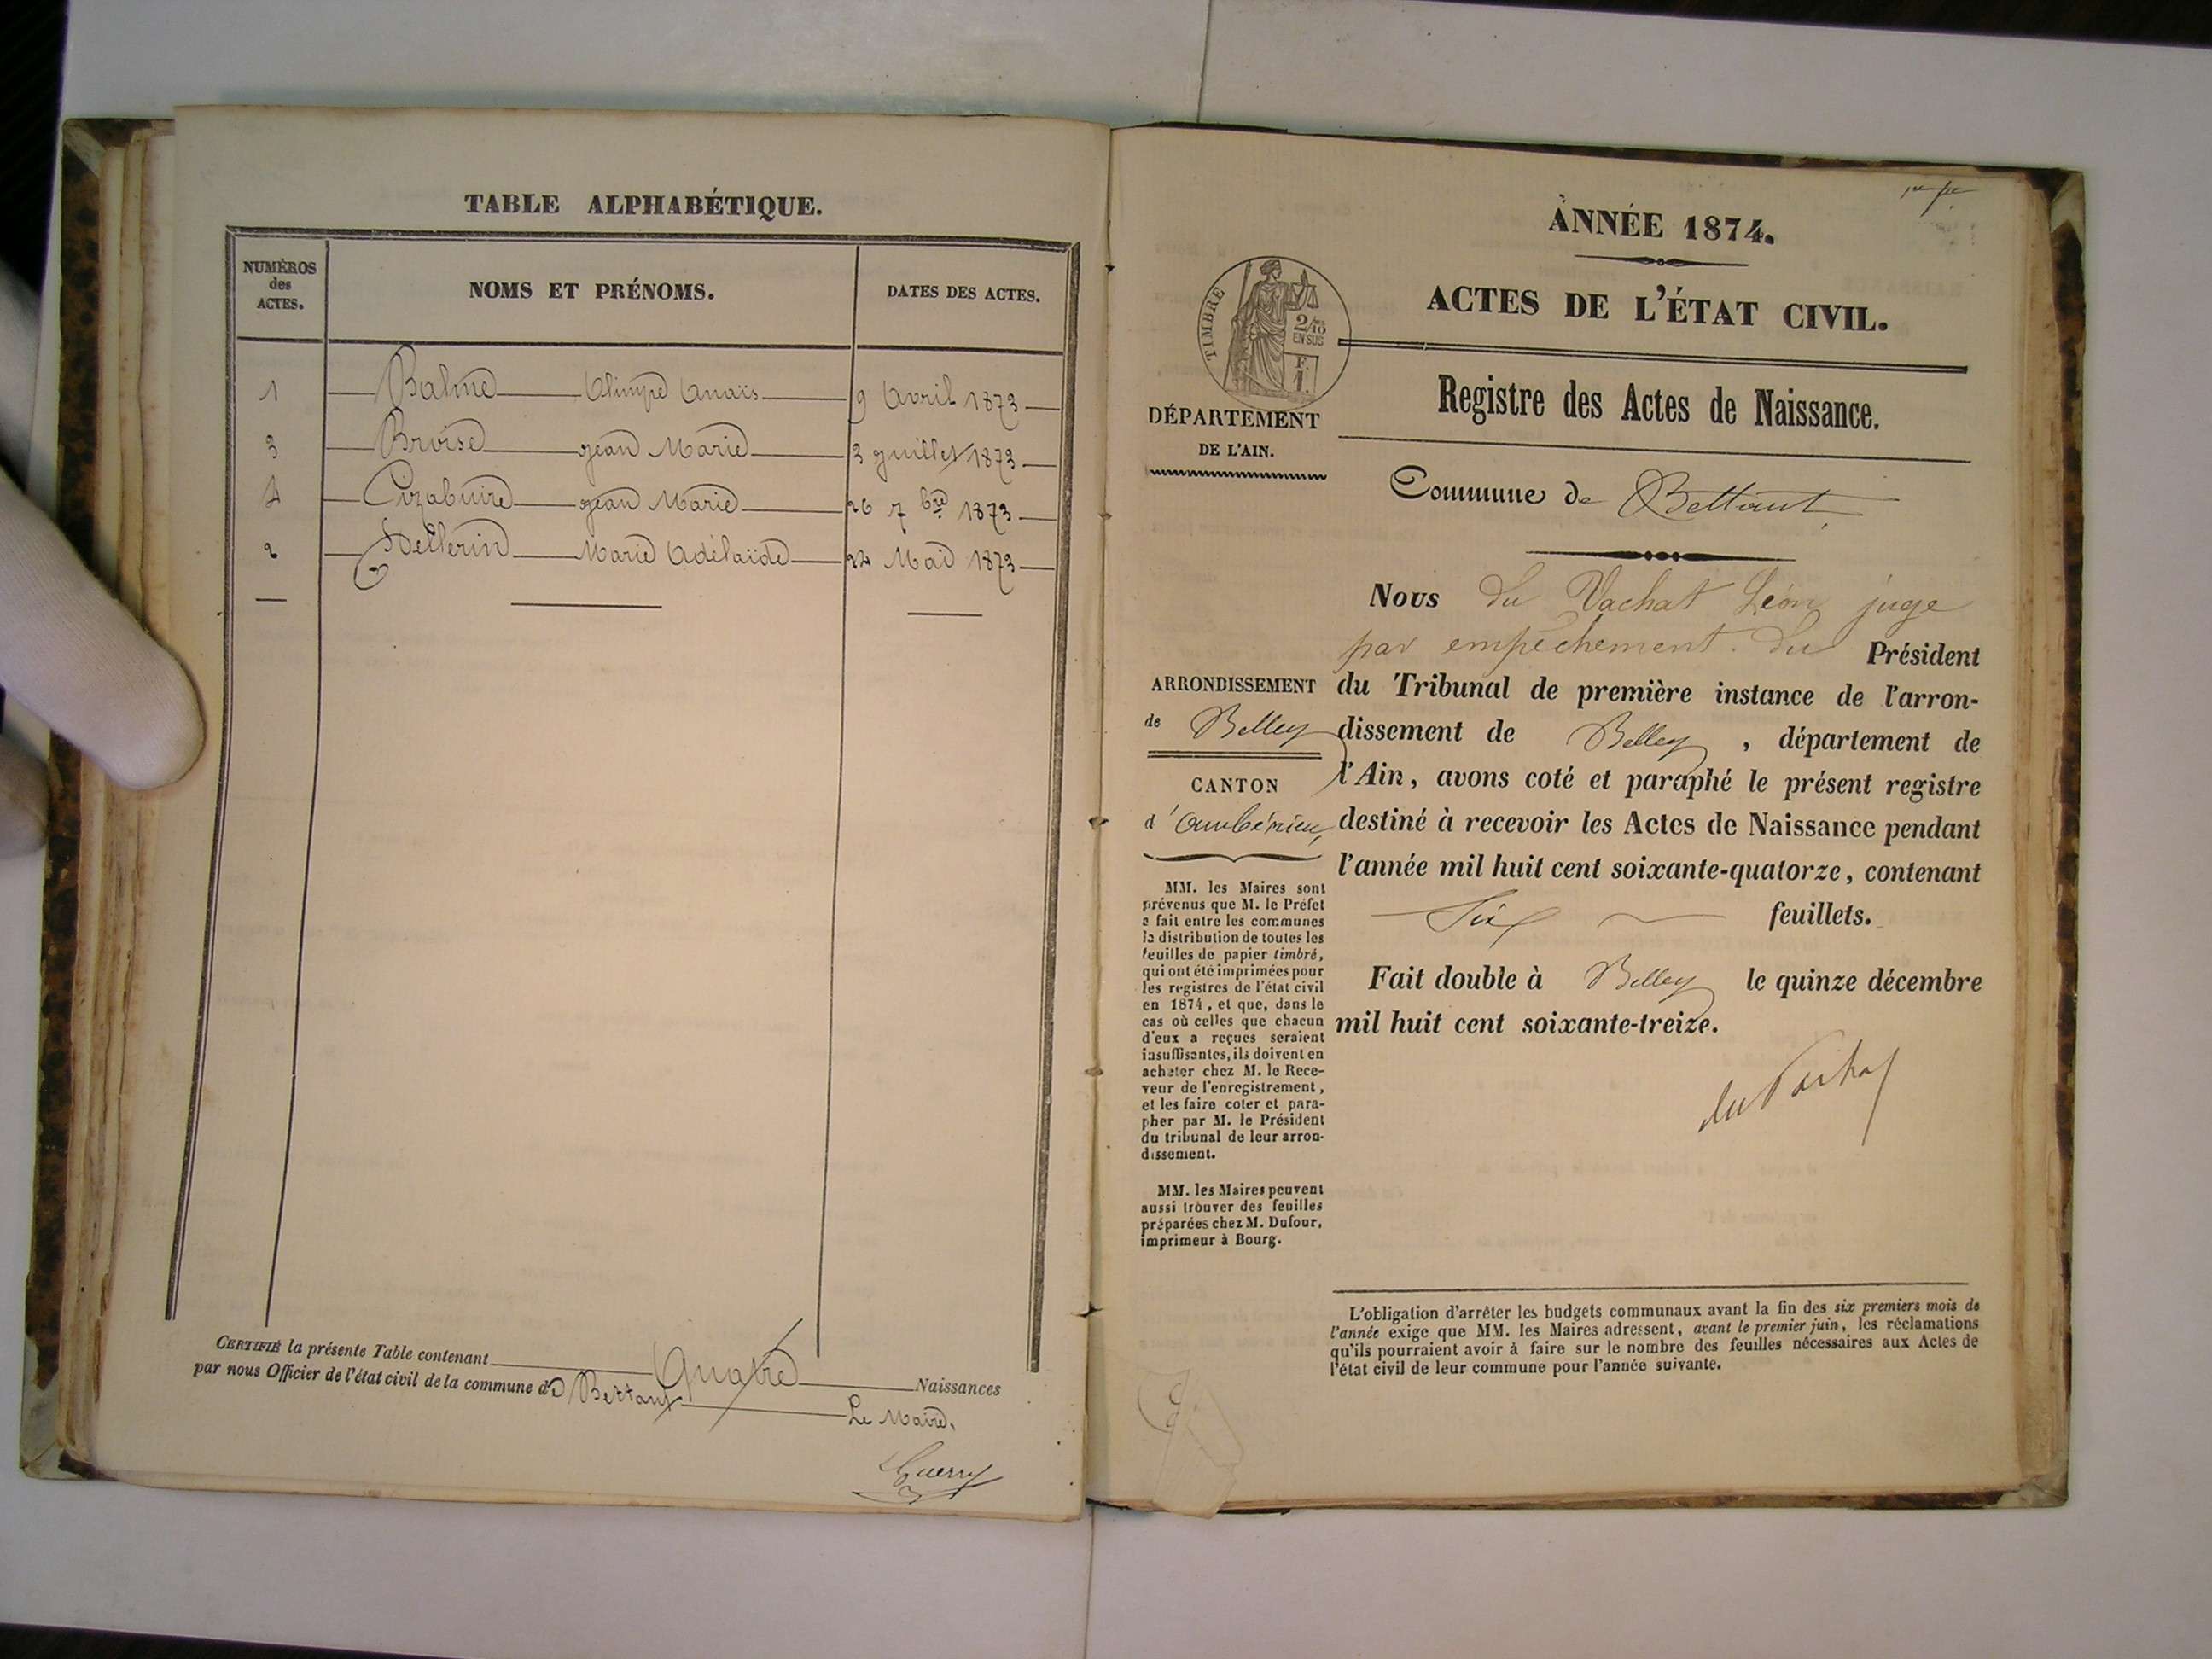 TABLE ALPHABÉTIQUE.
NUMÉROS
des
ACTES.
NOMS ET PRÉNOMS.
DATES DES ACTES.
1 Balme Olimpe Anaïs 9 Avril 1873
3 Broise Jean Marie 3 Juillet 1873
4 Jean Marie 26 7bre 1873
2 Pellerin Marie Adélaïde 22 Mai 1873
CERTIFIÉ la présente Table contenant Quatre Naissances
par nous Officier de l'état civil de la commune de Bettant
Le Maire,
Guerry
1er fet
ANNÉE 1874.
ACTES DE L'ÉTAT CIVIL.
TIMBRE
2/10
EN SUS
F.
1.
Registre des Actes de Naissance.
DÉPARTEMENT
DE L'AIN.
Commune de Bettant
Nous du Vachat Léon juge
par empêchement du Président
du Tribunal de première instance de l'arron-
dissement de Belley, département de
l'Ain, avons coté et paraphé le présent registre
destiné à recevoir les Actes de Naissance pendant
l'année mil huit cent soixante-quatorze, contenant
Six feuillets.
Fait double à Belley le quinze décembre
mil huit cent soixante-treize.
du Vachat
ARRONDISSEMENT
de Belley
CANTON
d'Ambérieu
MM. les Maires sont
prévenus que M. le Préfet
a fait entre les communes
la distribution de toutes les
feuilles de papier timbré,
qui ont été imprimées pour
les registres de l'état civil
en 1874, et que, dans le
cas où celles que chacun
d'eux a reçues seraient
insuffisantes, ils doivent en
acheter chez M. le Rece-
veur de l'enregistrement,
et les faire coter et para-
pher par M. le Président
du tribunal de leur arron-
dissement.
MM. les Maires peuvent
aussi trouver des feuilles
préparées chez M. Dufour,
imprimeur à Bourg.
L'obligation d'arrêter les budgets communaux avant la fin des six premiers mois de
l'année exige que MM. les Maires adressent, avant le premier juin, les réclamations
qu'ils pourraient avoir à faire sur le nombre des feuilles nécessaires aux Actes de
l'état civil de leur commune pour l'année suivante.